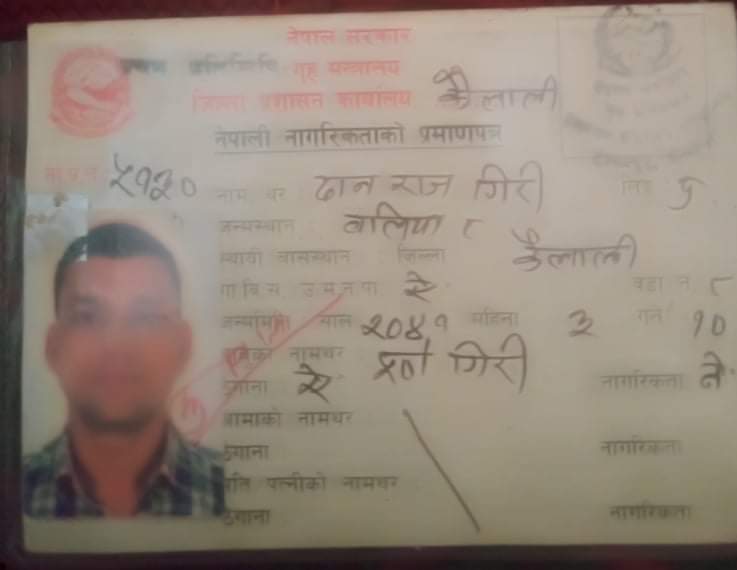 नेपाल सरकार
गृह मन्त्रालय
जिल्ला प्रशासन कार्यालय कैलाली
नेपाली नागरिकताको प्रमाणपत्र
नाम थर दान राज गिरी लिङ्ग पु
जन्मस्थान वलिया ८
स्थायी वासस्थान जिल्ला कैलाली
गा.वि.स. उ.म.न.पा. ऐ. वडा नं ८
जन्ममिति साल २०४१ महिना ३ गते १०
बाबुको नामथर गिरी
ठेगाना ऐ नागरिकता ने.
आमाको नामथर
ठेगाना नागरिकता
पति पत्नीको नामथर
ठेगाना नागरिकता